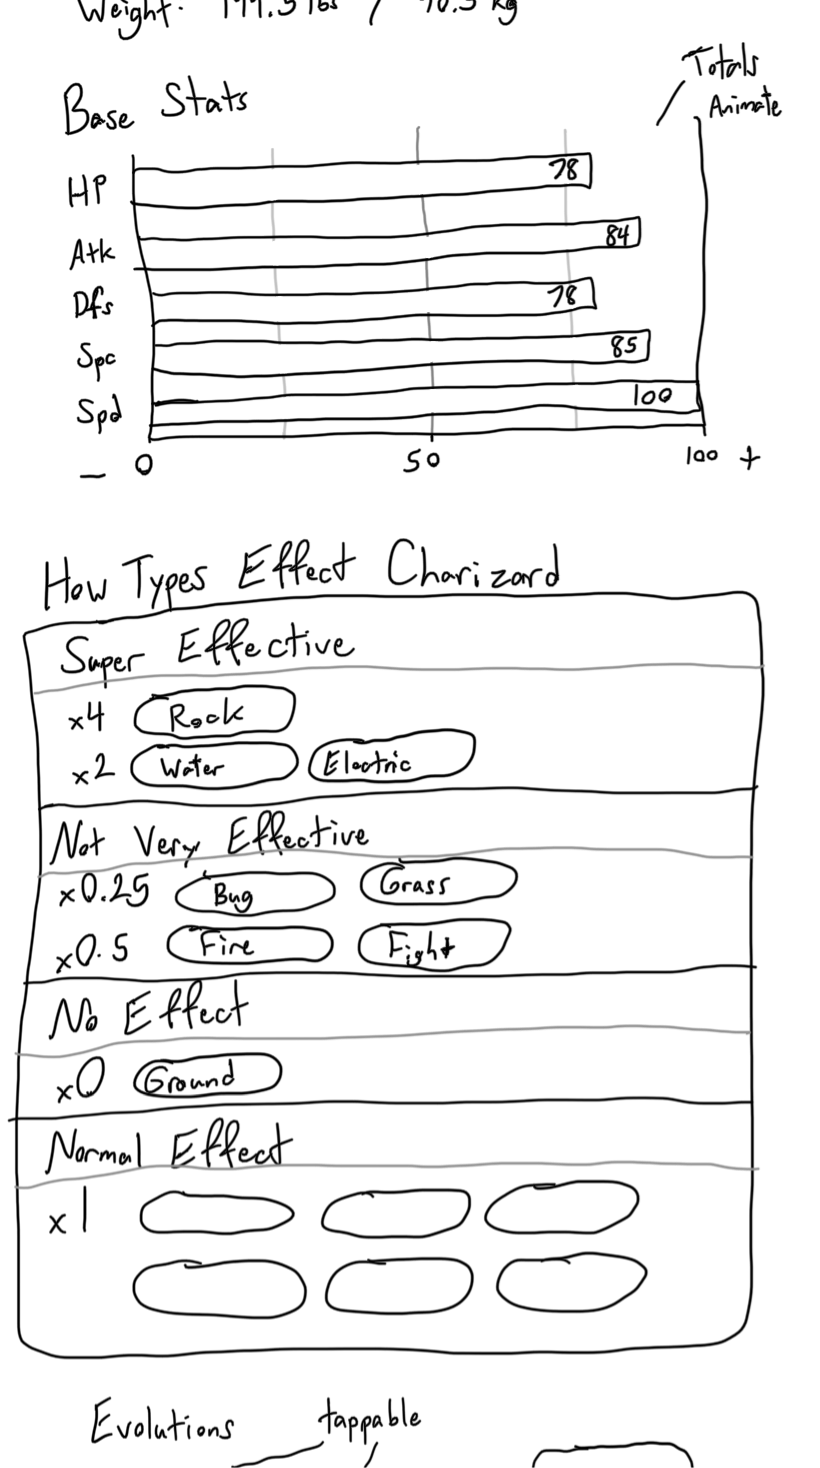 Weight: 199.5 lbs / 90.5 kg
Totals
Animate
Base Stats
HP 78
Atk 84
Dfs 78
Spc 85
Spd 100
– 0 50 100 +
How Types Effect Charizard
Super Effective
x4 Rock
x2 Water Electric
Not Very Effective
x0.25 Bug Grass
x0.5 Fire Fight
No Effect
x0 Ground
Normal Effect
x1
Evolutions tappable